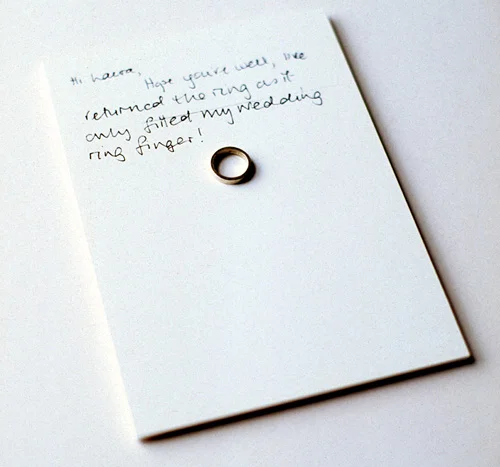 Hi Laura,
Hope you're well, I've
returned the ring as it
only fitted my wedding
ring finger!